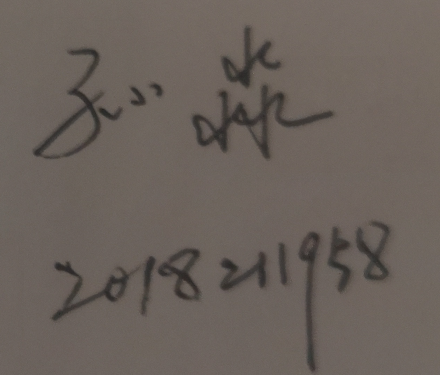 孙淼
2018211958